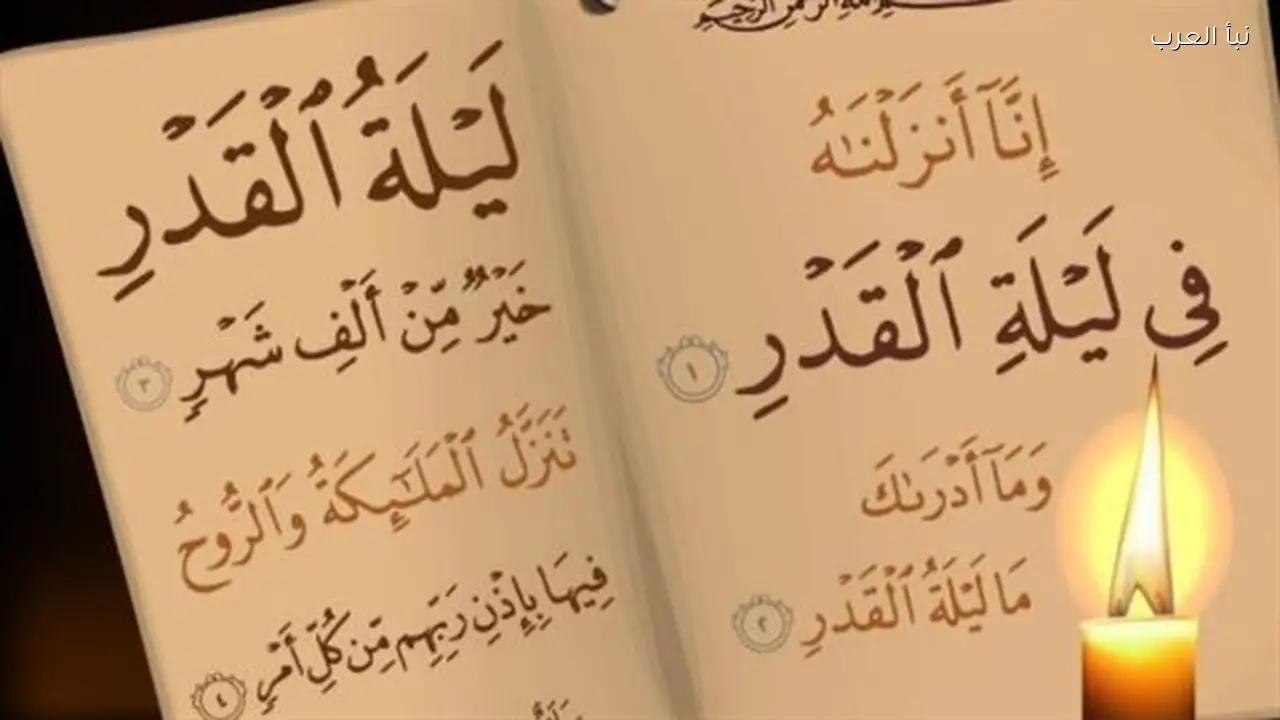 نبأ العرب
إِنَّآ أَنزَلْنَٰهُ
فِى لَيْلَةِ ٱلْقَدْرِ ١
وَمَآ أَدْرَىٰكَ
مَا لَيْلَةُ ٱلْقَدْرِ ٢
لَيْلَةُ ٱلْقَدْرِ
خَيْرٌ مِّنْ أَلْفِ شَهْرٍ ٣
تَنَزَّلُ ٱلْمَلَٰٓئِكَةُ وَٱلرُّوحُ
فِيهَا بِإِذْنِ رَبِّهِم مِّن كُلِّ أَمْرٍ ٤